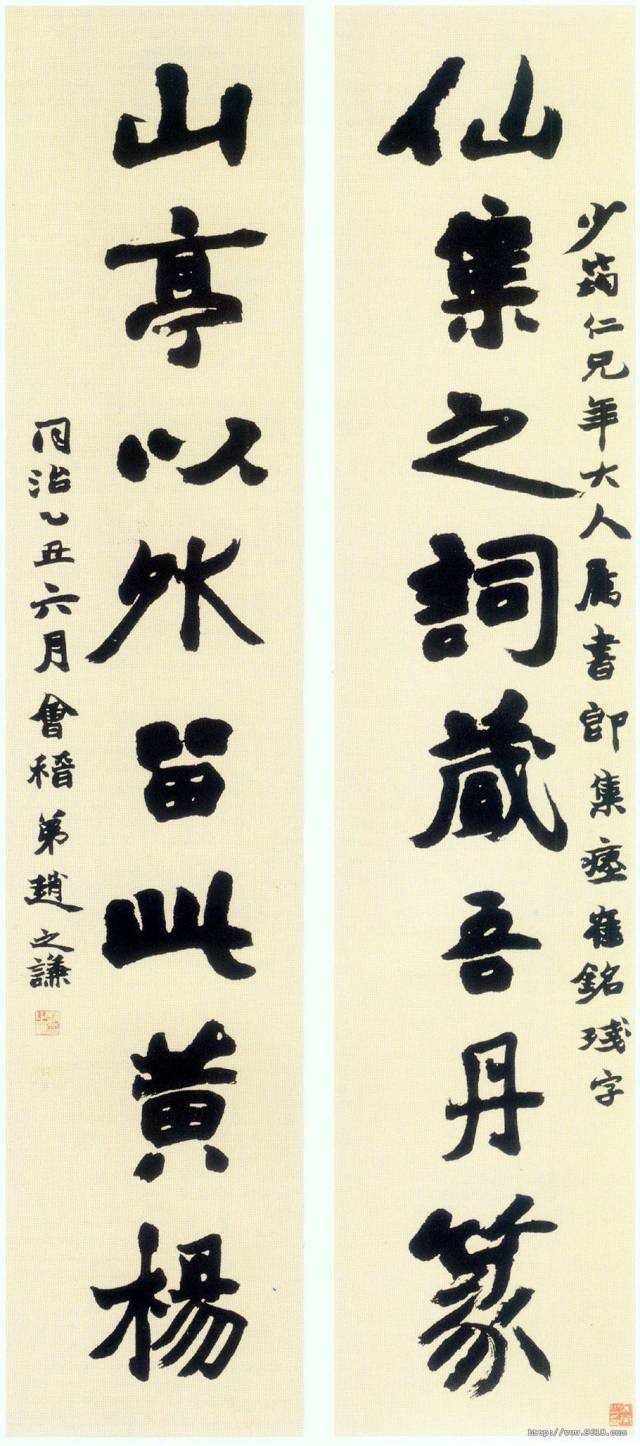 少筠仁兄年大人属書即集瘞隺銘殘字
仙集之詞藏吾丹篆
山亭以外留此黃楊
同治乙丑六月會稽弟趙之謙